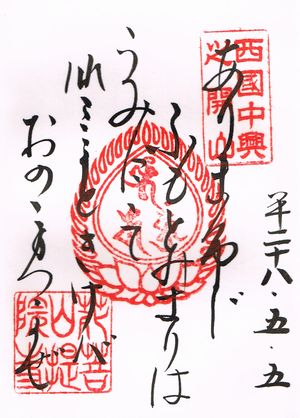 西國中興
之開山
ありまふじ
ふもとのきりは
うみににて
なみかときけば
おのゝまつかぜ
平二十八・五・五
花山院
菩提寺